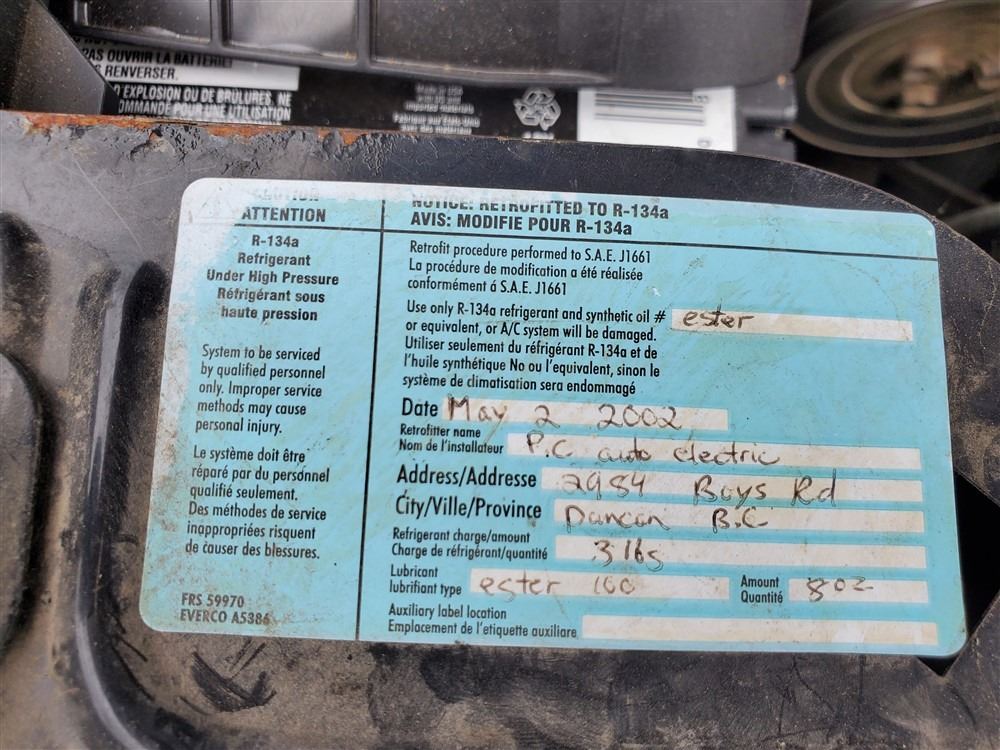 PAS OUVRIR LA BATTERIE
RENVERSER.
D'EXPLOSION OU DE BRÛLURES, NE
COMMANDE POUR UNE UTILISATION
CAUTION
ATTENTION
R-134a
Refrigerant
Under High Pressure
Réfrigérant sous
haute pression
System to be serviced
by qualified personnel
only. Improper service
methods may cause
personal injury.
Le système doit être
réparé par du personnel
qualifié seulement.
Des méthodes de service
inappropriées risquent
de causer des blessures.
FRS 59970
EVERCO A5386
NOTICE: RETROFITTED TO R-134a
AVIS: MODIFIE POUR R-134a
Retrofit procedure performed to S.A.E. J1661
La procédure de modification a été réalisée
conformément á S.A.E. J1661
Use only R-134a refrigerant and synthetic oil # ester
or equivalent, or A/C system will be damaged.
Utiliser seulement du réfrigérant R-134a et de
l'huile synthétique No ou l'equivalent, sinon le
système de climatisation sera endommagé
Date May 2 2002
Retrofitter name
Nom de l'installateur P.C auto electric
Address/Addresse 2984 Boys Rd
City/Ville/Province Duncan B.C.
Refrigerant charge/amount
Charge de réfrigérant/quantité 3 lbs
Lubricant
lubrifiant type ester 100
Amount
Quantité 8oz
Auxiliary label location
Emplacement de l'etiquette auxiliare